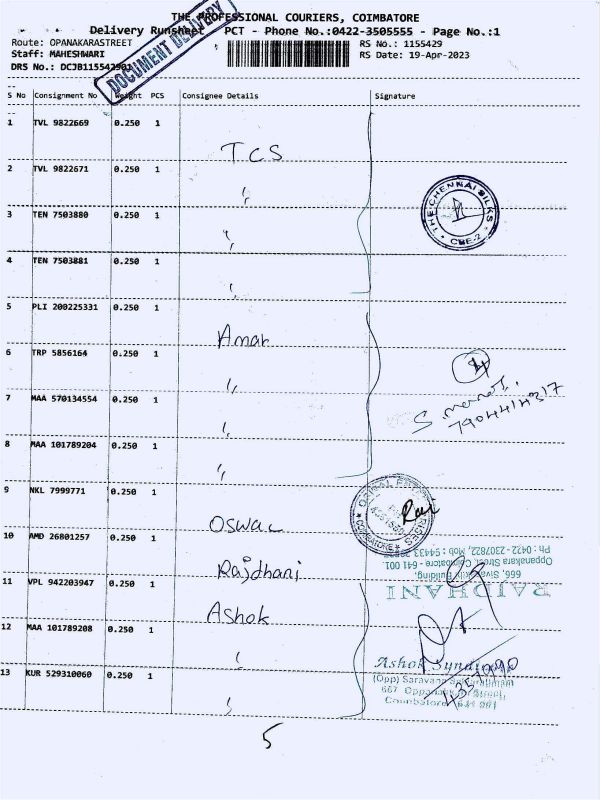 THE PROFESSIONAL COURIERS, COIMBATORE
Delivery Runsheet PCT - Phone No.:0422-3505555 - Page No.:1
DOCUMENT DELIVERY
Route: OPANAKARASTREET
RS No.: 1155429
Staff: MAHESHWARI
RS Date: 19-Apr-2023
DRS No.: DCJB115542901
S No Consignment No Weight PCS Consignee Details Signature
1 TVL 9822669 0.250 1 TCS
2 TVL 9822671 0.250 1 "
THE CHENNAI SILKS
CBE-2
3 TEN 7503880 0.250 1 "
4 TEN 7503881 0.250 1 "
5 PLI 200225331 0.250 1 Amar
6 TRP 5856164 0.250 1 "
7 MAA 570134554 0.250 1 "
7904414317
8 MAA 101789204 0.250 1 "
9 NKL 7999771 0.250 1 Oswal
COIMBATORE
10 AMD 26801257 0.250 1 Rajdhani
RAJDHANI
666, Building,
Oppanakara Street, Coimbatore - 641 001
Ph : 0422 - 2307822, Mob : 94433
11 VPL 942203947 0.250 1 Ashok
12 MAA 101789208 0.250 1 "
Ashok Syndicate
(Opp) Saravana
667 Oppanakara Street,
Coimbatore 641 001
13 KUR 529310060 0.250 1 "
5